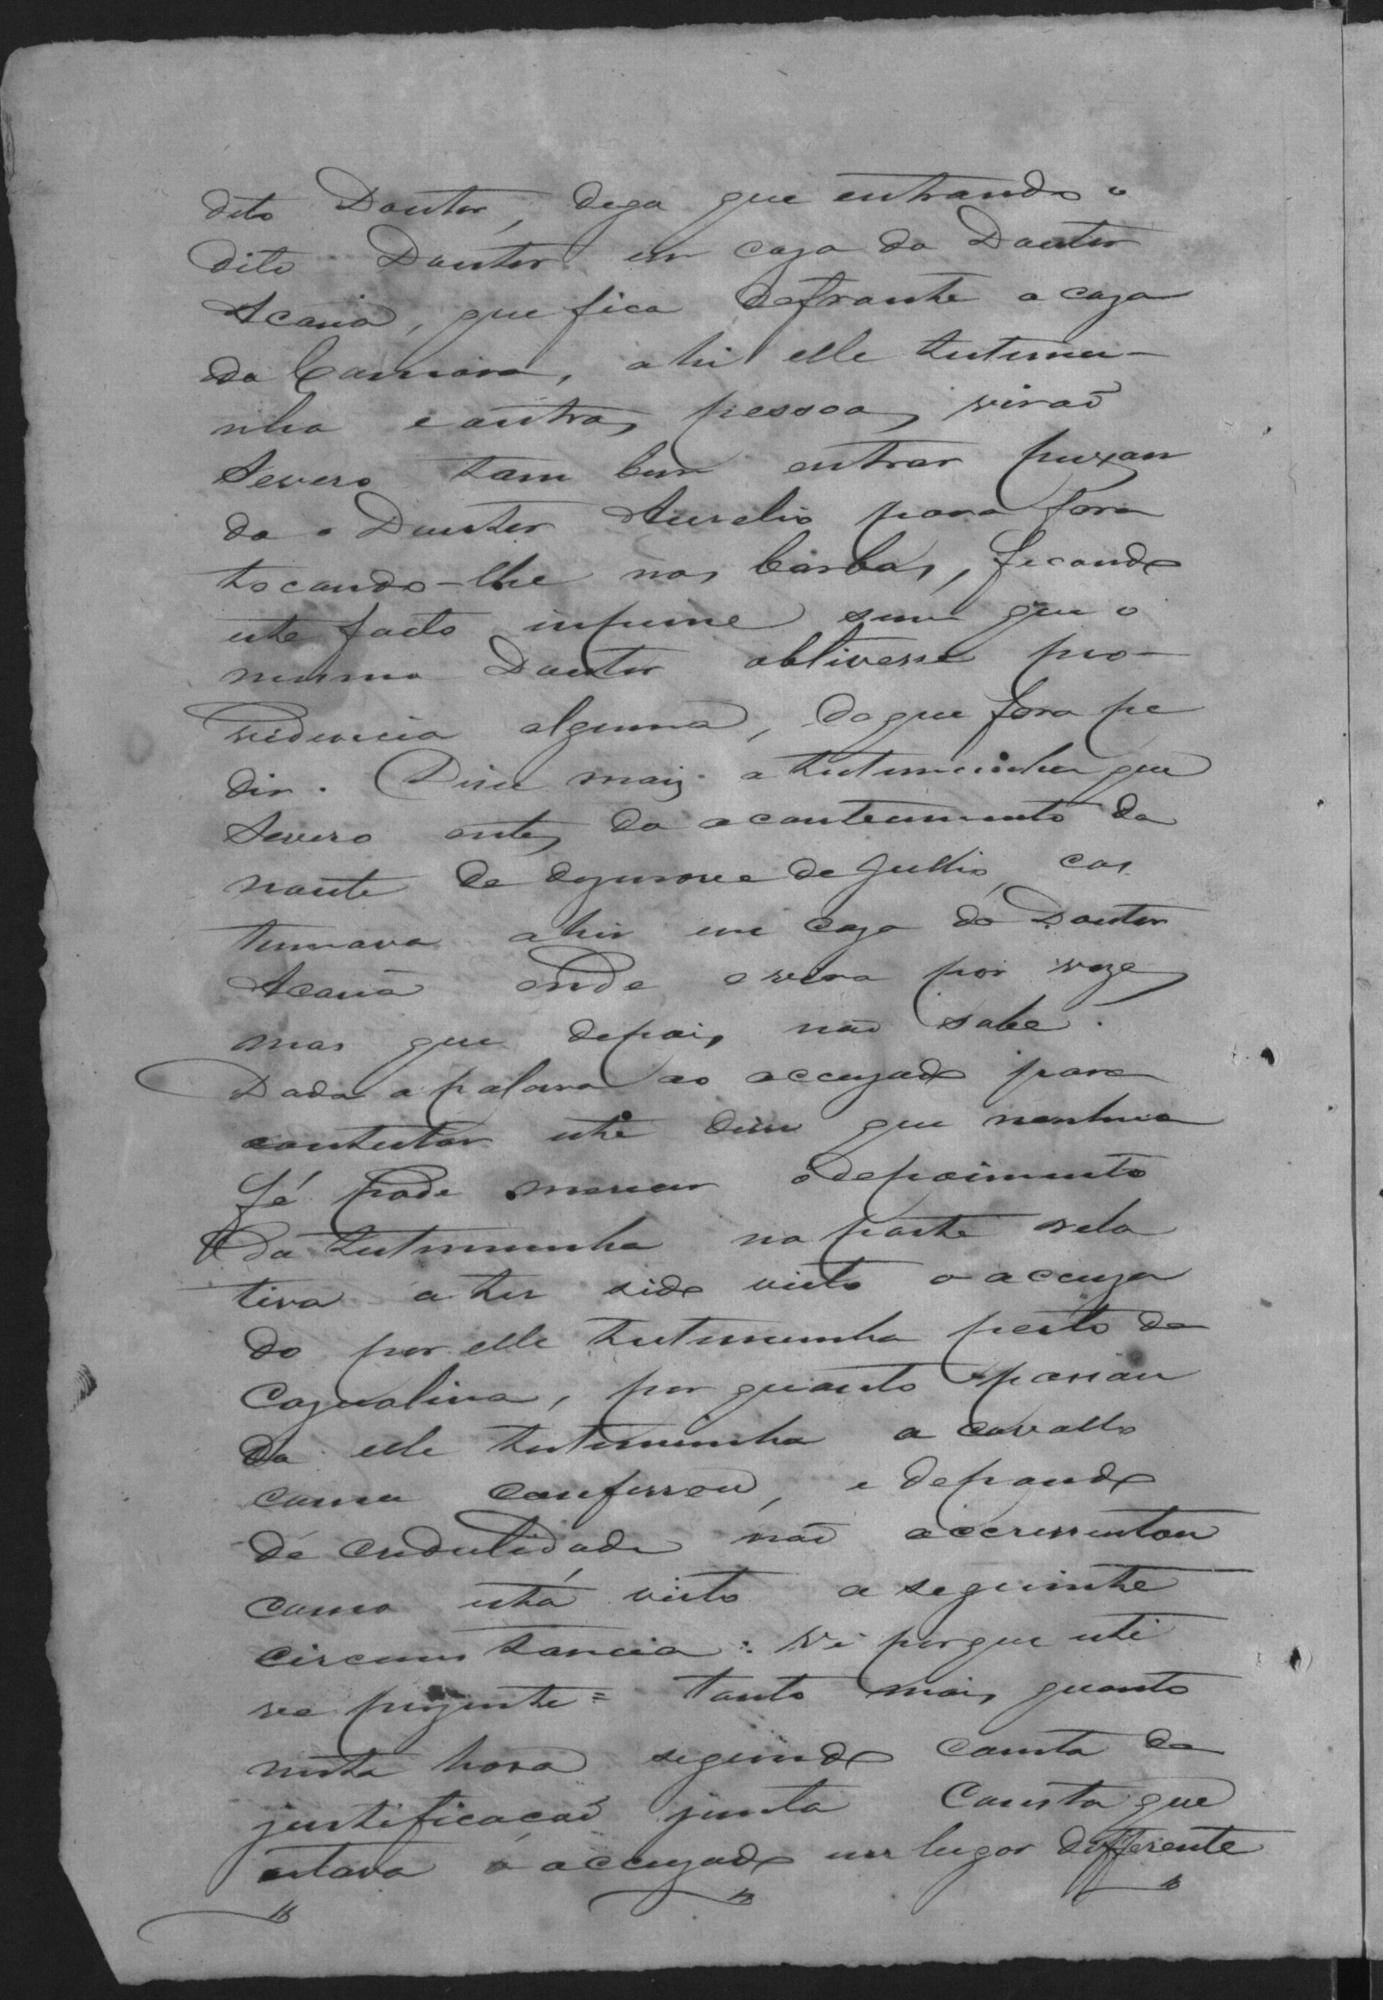 dito Doutor, digo que entrando o
dito Doutor em caza do Doutor
Acauã, que fica defronte a caza
da Camara, ahi elle testemu-
nha e outras pessoas virão
Severo tam bem entrar puxan
do o Doutor Aurelio para fora
tocando-lhe nas barbas, ficando
este facto impune sem que o
mesmo Doutor obtivesse pro-
videncia alguma, do que fora pe
dir. Disse mais a testemunha que
Severo antes do acontecimento da
noute de dezenove de Julho, cos
tumava a hir em caza do Doutor
Acauã onde o vira por vezes
mas que depois não sabe.
Dada a palavra ao accuzado para
contestar este disse que nenhua
fé pode merecer o depoimento
da testemunha na parte rela
tiva a ter sido visto o accuza
do por elle testemunha perto de
Cajualina, por quanto passan
do elle testemunha a cavallo
como confessou, e depondo
de credulidade não accrescentou
como está visto a seguinte
circumstancia: Vi porque esti
ve prezente = tanto mais quanto
nesta hora segundo consta da
justificacão junta consta que
estava o accuzado em lugar differente